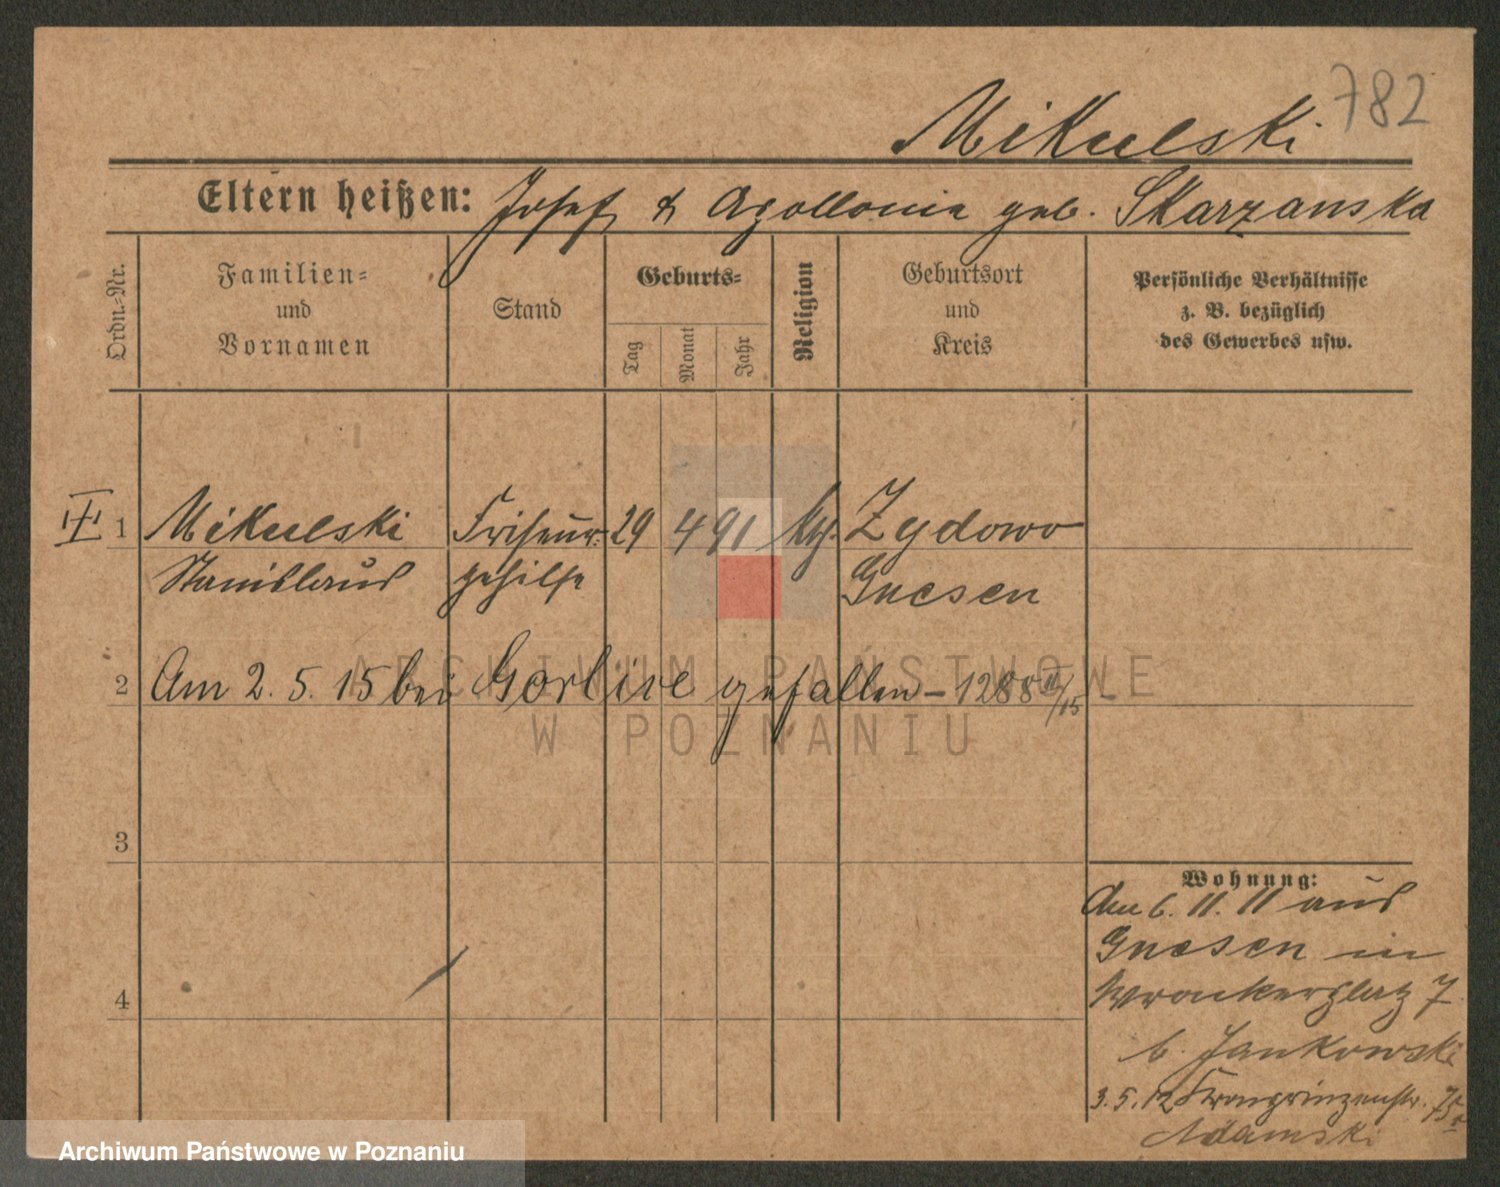 782
Mikulski
Eltern heißen: Josef & Apollonia geb. Skarzanska
Ordn.-Nr.
Familien-
und
Vornamen
Stand
Geburts-
Tag
Monat
Jahr
Religion
Geburtsort
und
Kreis
Persönliche Verhältnisse
z. B. bezüglich
des Gewerbes usw.
III 1 Mikulski Friseur- 29 4 91 kth. Zydowo
Stanislaus gehilfe Gnesen
2 Am 2. 5. 15 bei Gorlice gefallen – 1288 II/15
3
4
Wohnung:
Am 6. 11. 11 aus
Gnesen in
Wronkerplatz 7
b. Jankowski
3. 5. 12 Kronprinzenstr.
Adamski
ARCHIWUM PAŃSTWOWE
W POZNANIU
Archiwum Państwowe w Poznaniu